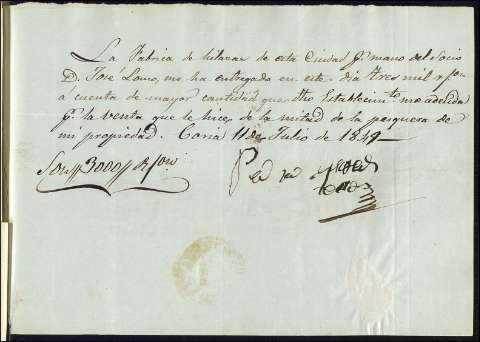 La Fabrica de hilazas de esta Ciudad p.r mano del Socio
D. José me ha entregado en este dia tres mil r.s
á cuenta de mayor cantidad que dho Establecim.to me adeuda
p.r la venta que le hice de la mitad de la pesquera de
mi propiedad. Coria 11 de Julio de 1849
Son 3000 R.s
Pedro